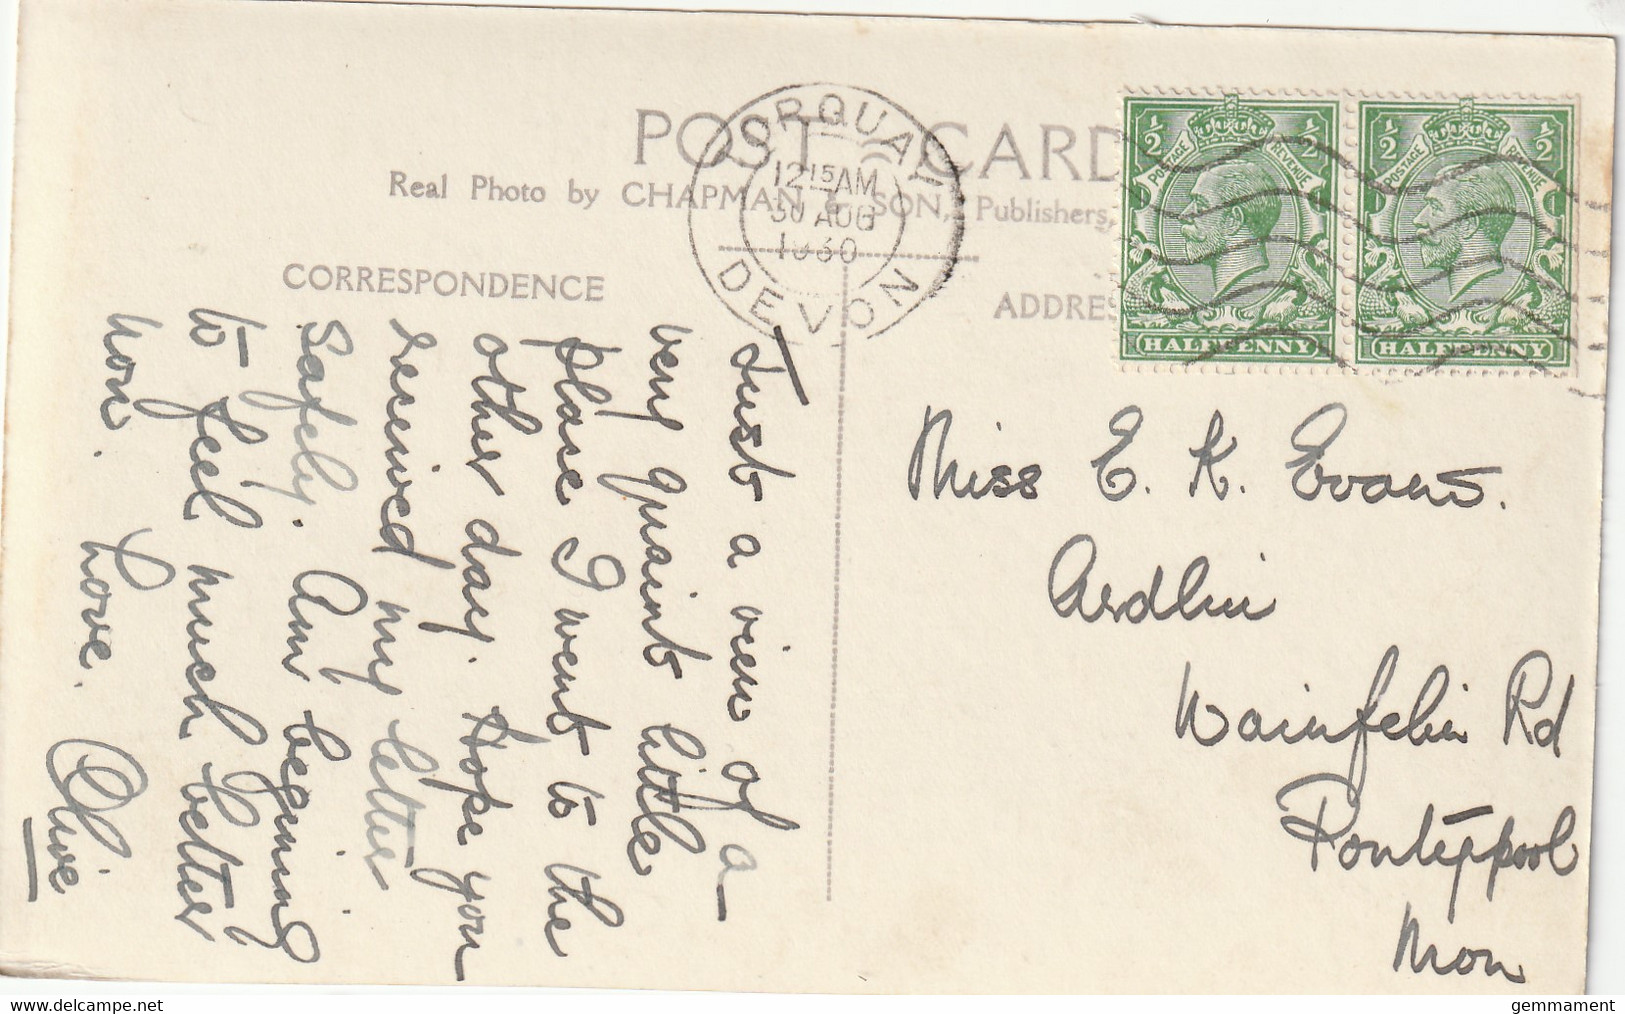 POST CARD
Real Photo by CHAPMAN & SON, Publishers,
TORQUAY
12 15 AM
30 AUG
1930
DEVON
CORRESPONDENCE
ADDRES
1/2 POSTAGE REVENUE 1/2
HALFPENNY
1/2 POSTAGE REVENUE 1/2
HALFPENNY
Just a view of a
very quaint little
place I went to the
other day. Hope you
received my letter
safely. Am begining
to feel much better
now.
Love.
Olive
Miss E. K. Evans.
Ardlui
Wainfelin Rd
Pontypool
Mon
delcampe.net
gemmament